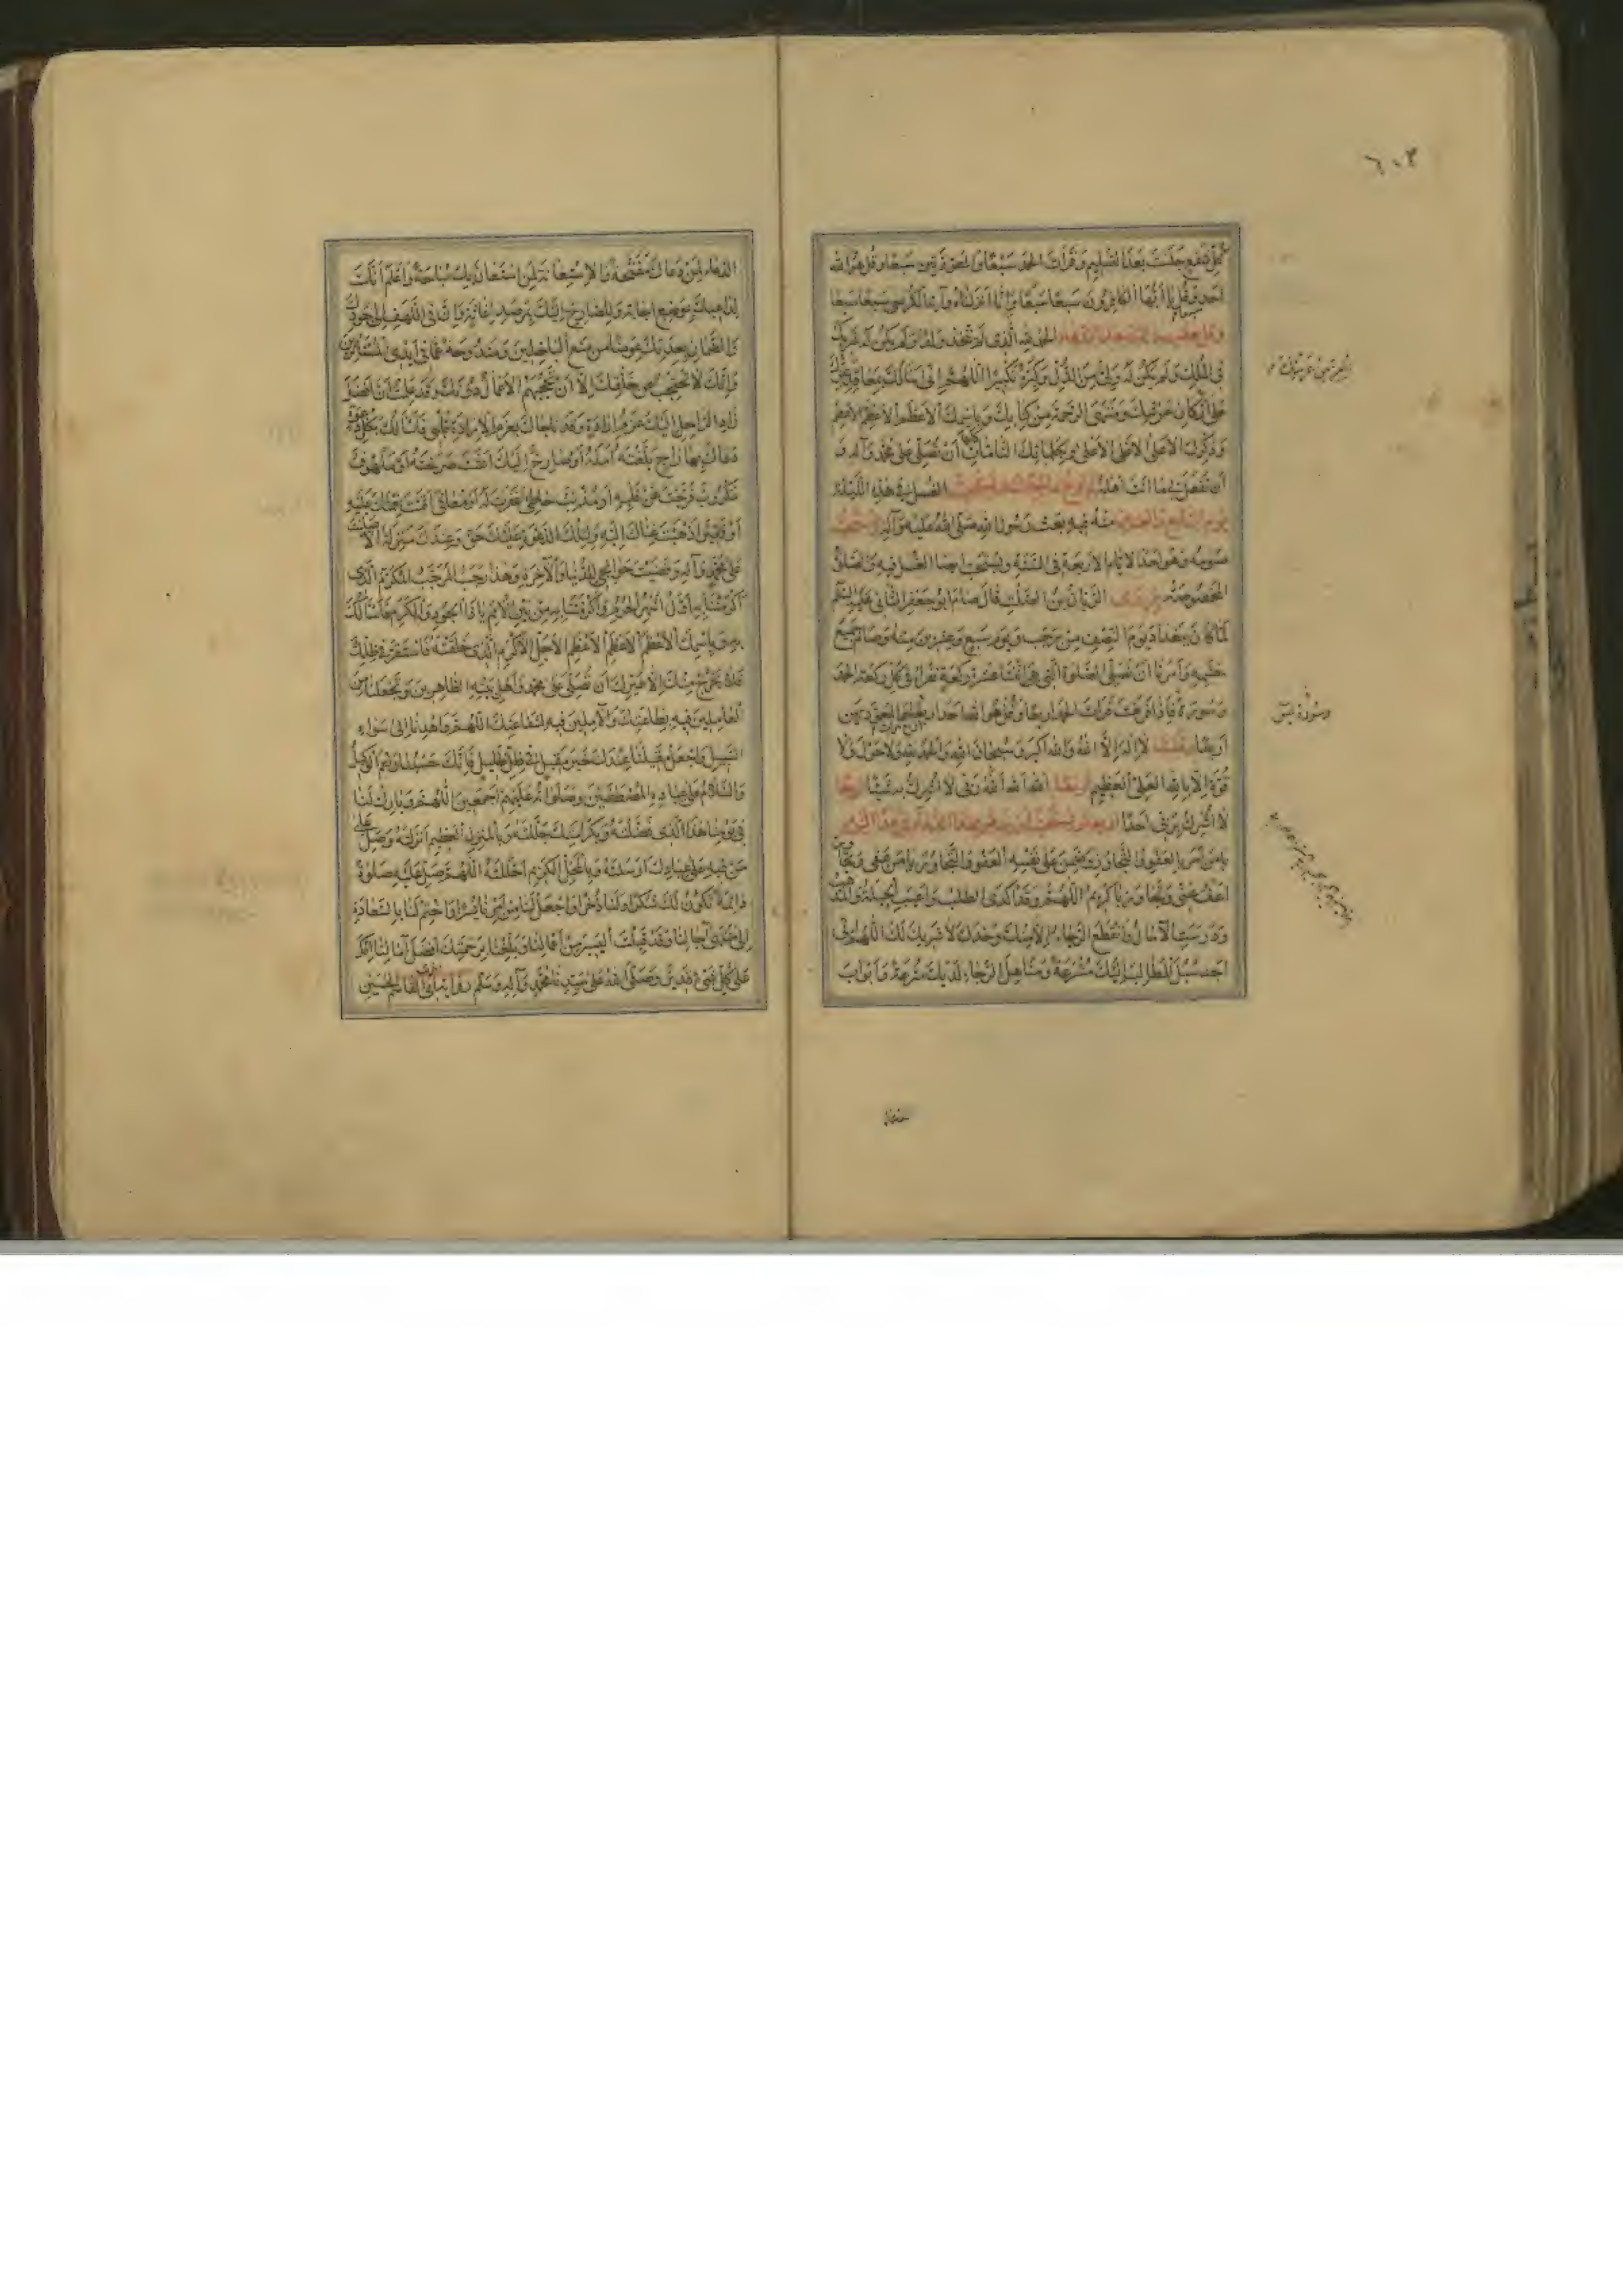 ٦٠٣
كل شفع جلست بعد التسليم وقرأت الحمد سبعا والمعوذتين سبعا وقل هو الله
احد وقل يا ايها الكافرون سبعا سبعا وانا انزلناه وآية الكرسي سبعا سبعا
وقل الحمد لله الذي لم يتخذ ولدا ولم يكن له شريك
في الملك ولم يكن له ولي من الذل وكبره تكبيرا اللهم اني اسألك بمعاقد عزك
على اركان عرشك ومنتهى الرحمة من كتابك وباسمك الاعظم الاعظم الاعظم
وذكرك الاعلى الاعلى الاعلى وبكلماتك التامات ان تصلي على محمد وآله و
ان تفعل بي ما انت اهله الغسل في هذه الليلة
يوم السابع والعشرين منه فيه بعث رسول الله صلى الله عليه وآله
صومه وهو احد الايام الاربعة في السنة ويستحب ايضا الغسل فيه والصلوة
المخصوصة الريان بن الصلت قال صام ابو جعفر الثاني عليه السلم
لما كان ببغداد يوم النصف من رجب ويوم سبع وعشرين منه وصام جميع
حشمه وامرنا ان نصلي الصلوة التي هي اثنتا عشرة ركعة نقرأ في كل ركعة الحمد
وسورة فاذا فرغت قرأت الحمد اربعا وقل هو الله احد اربعا والمعوذتين
وسورة يس
اربعا وقلت لا اله الا الله والله اكبر وسبحان الله والحمد لله ولا حول ولا
قوة الا بالله العلي العظيم اربعا الله الله ربي لا اشرك به شيئا اربعا
لا اشرك بربي احدا اربعا
يا من امر بالعفو والتجاوز وضمن على نفسه العفو والتجاوز يا من عفى وتجاوز
اعف عني وتجاوز يا كريم اللهم وقد اكدى الطلب واعيت الحيلة والمذهب
ودرست الآمال وانقطع الرجاء الا منك وحدك لا شريك لك اللهم اني
اجد سبل المطالب اليك مشرعة ومناهل الرجاء لديك مترعة وابواب
الدعاء لمن دعاك مفتحة والاستعانة لمن استعان بك مباحة واعلم انك
لداعيك بموضع اجابة وللصارخ اليك بمرصد اغاثة وان في اللهف الى جودك
والضمان بعدتك عوضا من منع الباخلين ومندوحة عما في ايدي المستأثرين
وانك لا تحتجب عن خلقك الا ان تحجبهم الاعمال دونك وقد علمت ان افضل
زاد الراحل اليك عزم ارادة وقد ناجاك بعزم الارادة قلبي فاسألك بكل دعوة
دعاك بها راج بلغته امله او صارخ اليك اغثت صرخته او ملهوف
مكروب فرجت عن قلبه او مذنب خاطئ غفرت له او معافى اتممت نعمتك عليه
او فقير اهديت غناك اليه ولتلك الدعوة عليك حق وعندك منزلة الا صليت
على محمد وآله وقضيت حوائجي للدنيا والآخرة وهذا رجب المرجب المكرم الذي
اكرمتنا به اول اشهر الحرم واكرمتنا به من بين الامم يا ذا الجود والكرم فاسألك
به وباسمك الاعظم الاعظم الاعظم الاجل الاكرم الذي خلقته فاستقر في ظلك
فلا يخرج منك الى غيرك ان تصلي على محمد واهل بيته الطاهرين وتجعلنا من
العاملين فيه بطاعتك والآملين فيه لشفاعتك اللهم واهدنا الى سواء
السبيل واجعل مقيلنا عندك خير مقيل في ظل ظليل فانك حسبنا ونعم الوكيل
والسلام على عباده المصطفين وصلواته عليهم اجمعين اللهم وبارك لنا
في يومنا هذا الذي فضلته وبكرامتك جللته وبالمنزل العظيم انزلته وصل على
من فيه الى عبادك ارسلته وبالمحل الكريم احللته اللهم صل عليه صلوة
دائمة تكون لك شكرا ولنا ذخرا واجعل لنا من امرنا يسرا واختم لنا بالسعادة
الى منتهى آجالنا وقد قبلت اليسير من اعمالنا وبلغنا برحمتك افضل آمالنا انك
على كل شيء قدير وصلى الله على سيدنا محمد وآله وسلم رواية ابي القاسم الحسين